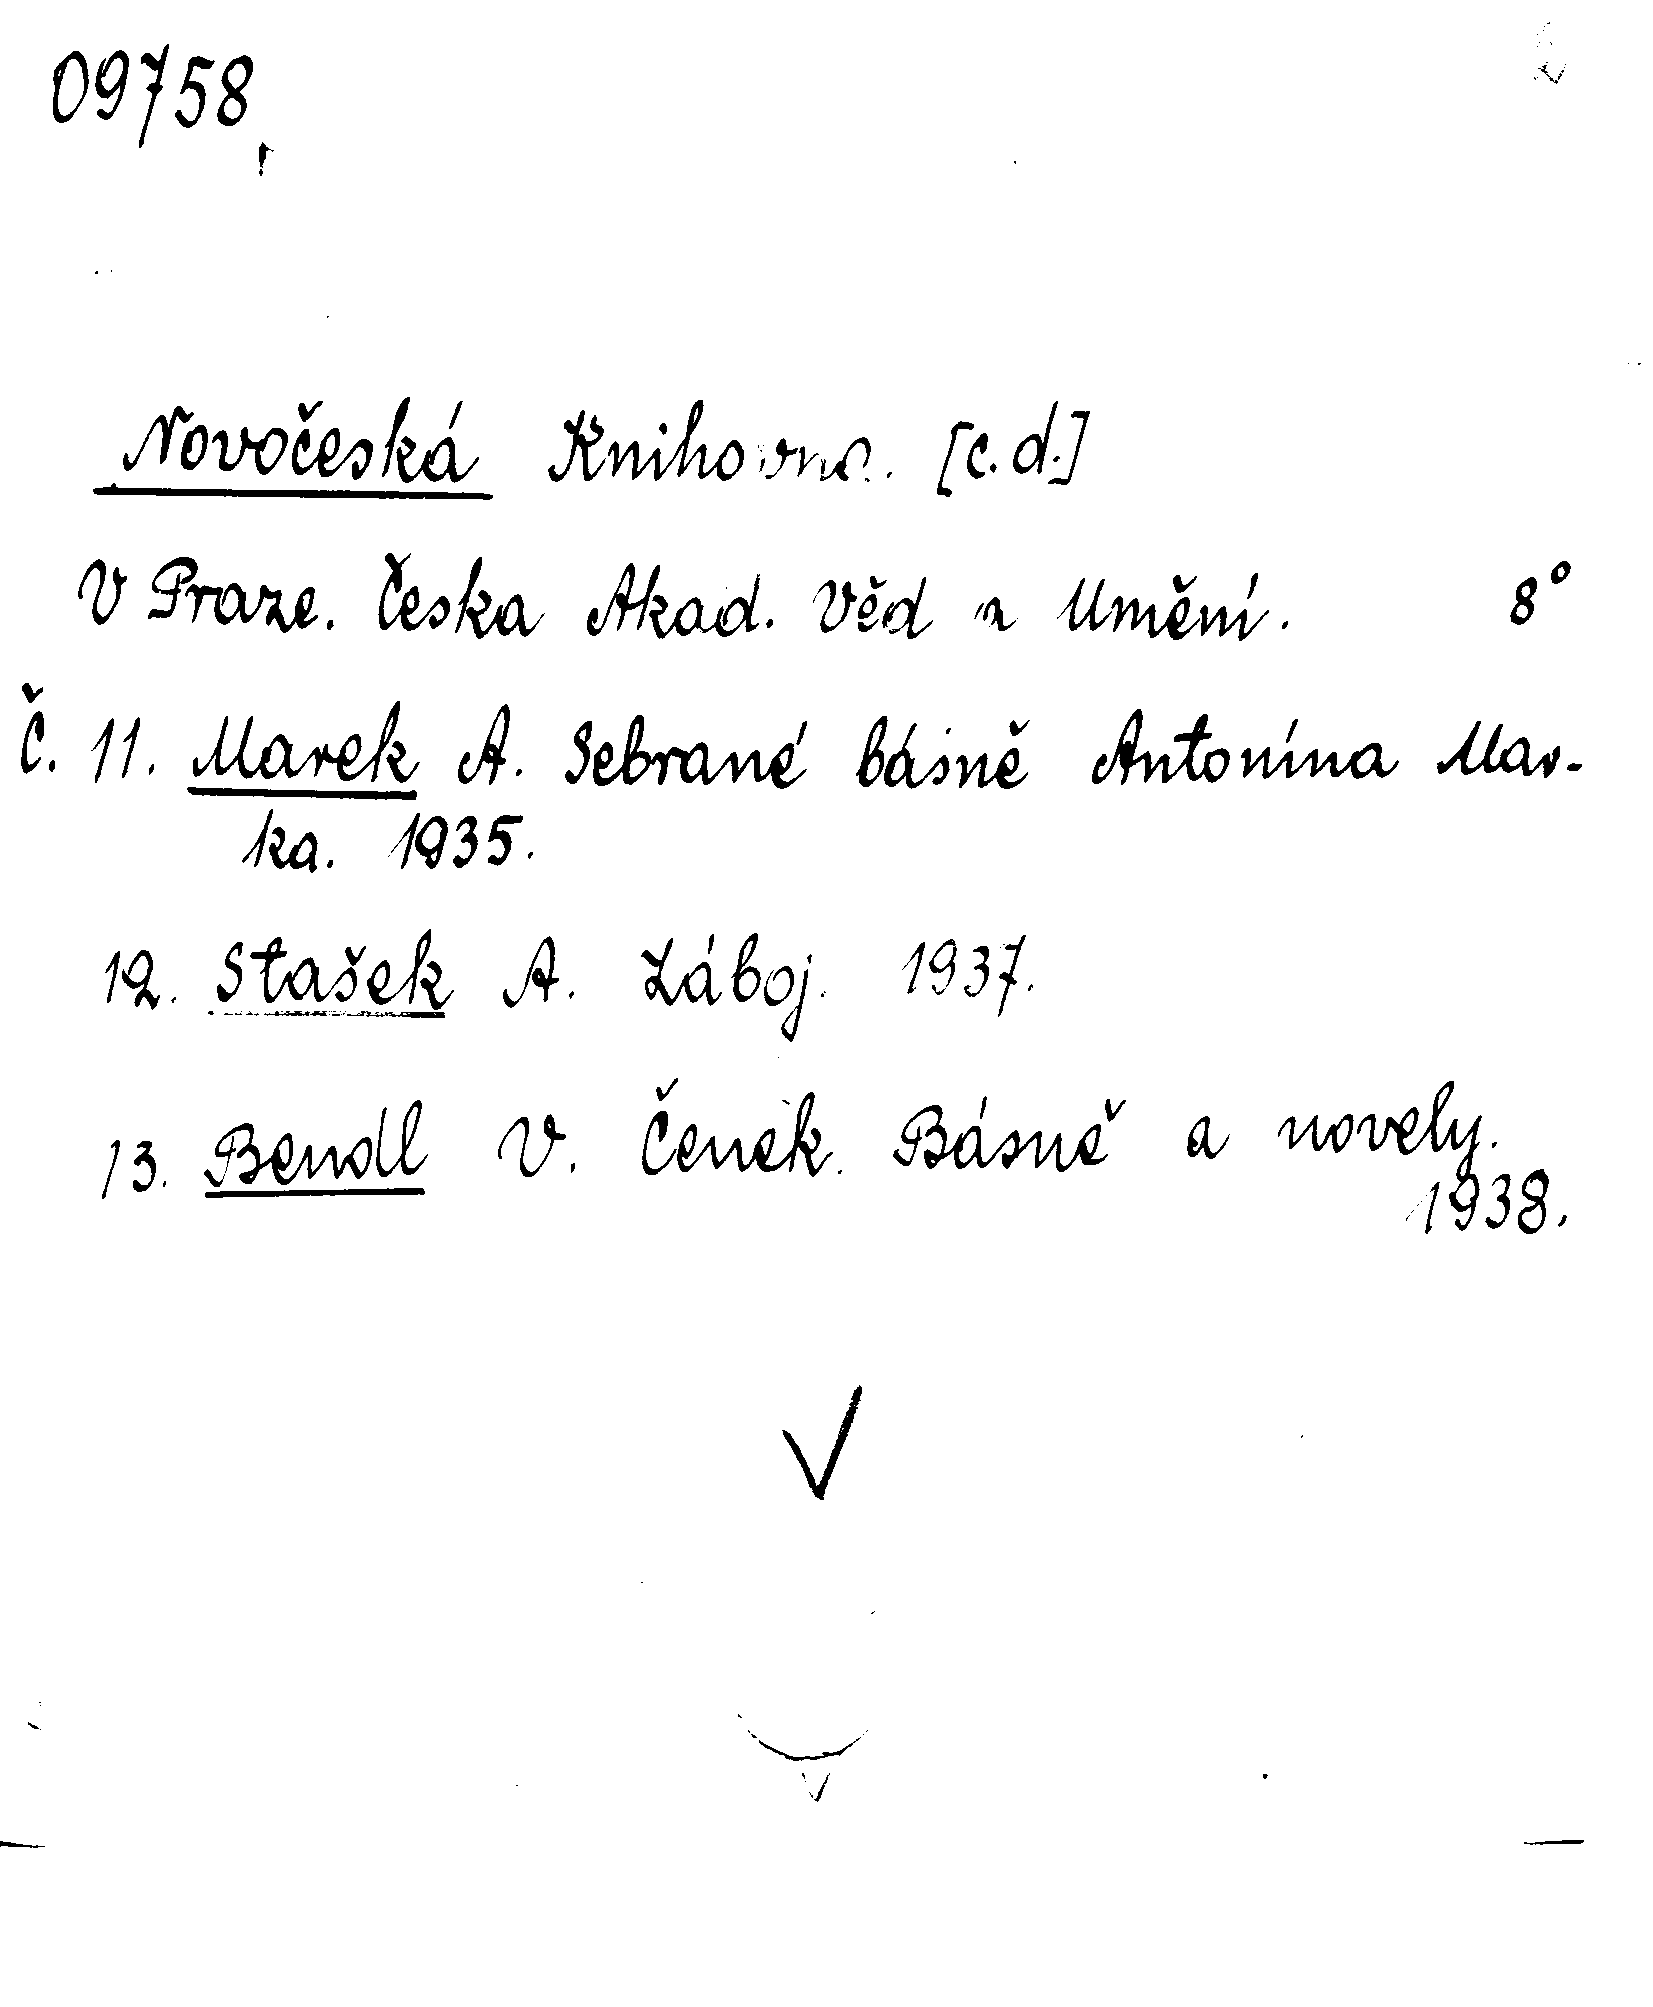 09758
Novočeská Knihovna. [c.d.]
V Praze. Česka Akad. Věd a Umění. 8°
Č. 11. Marek A. Sebrané básně Antonína Mar-
ka. 1935.
12. Stašek A. Záboj. 1937.
13. Bendl V. Čeněk. Básně a novely.
1938.
V